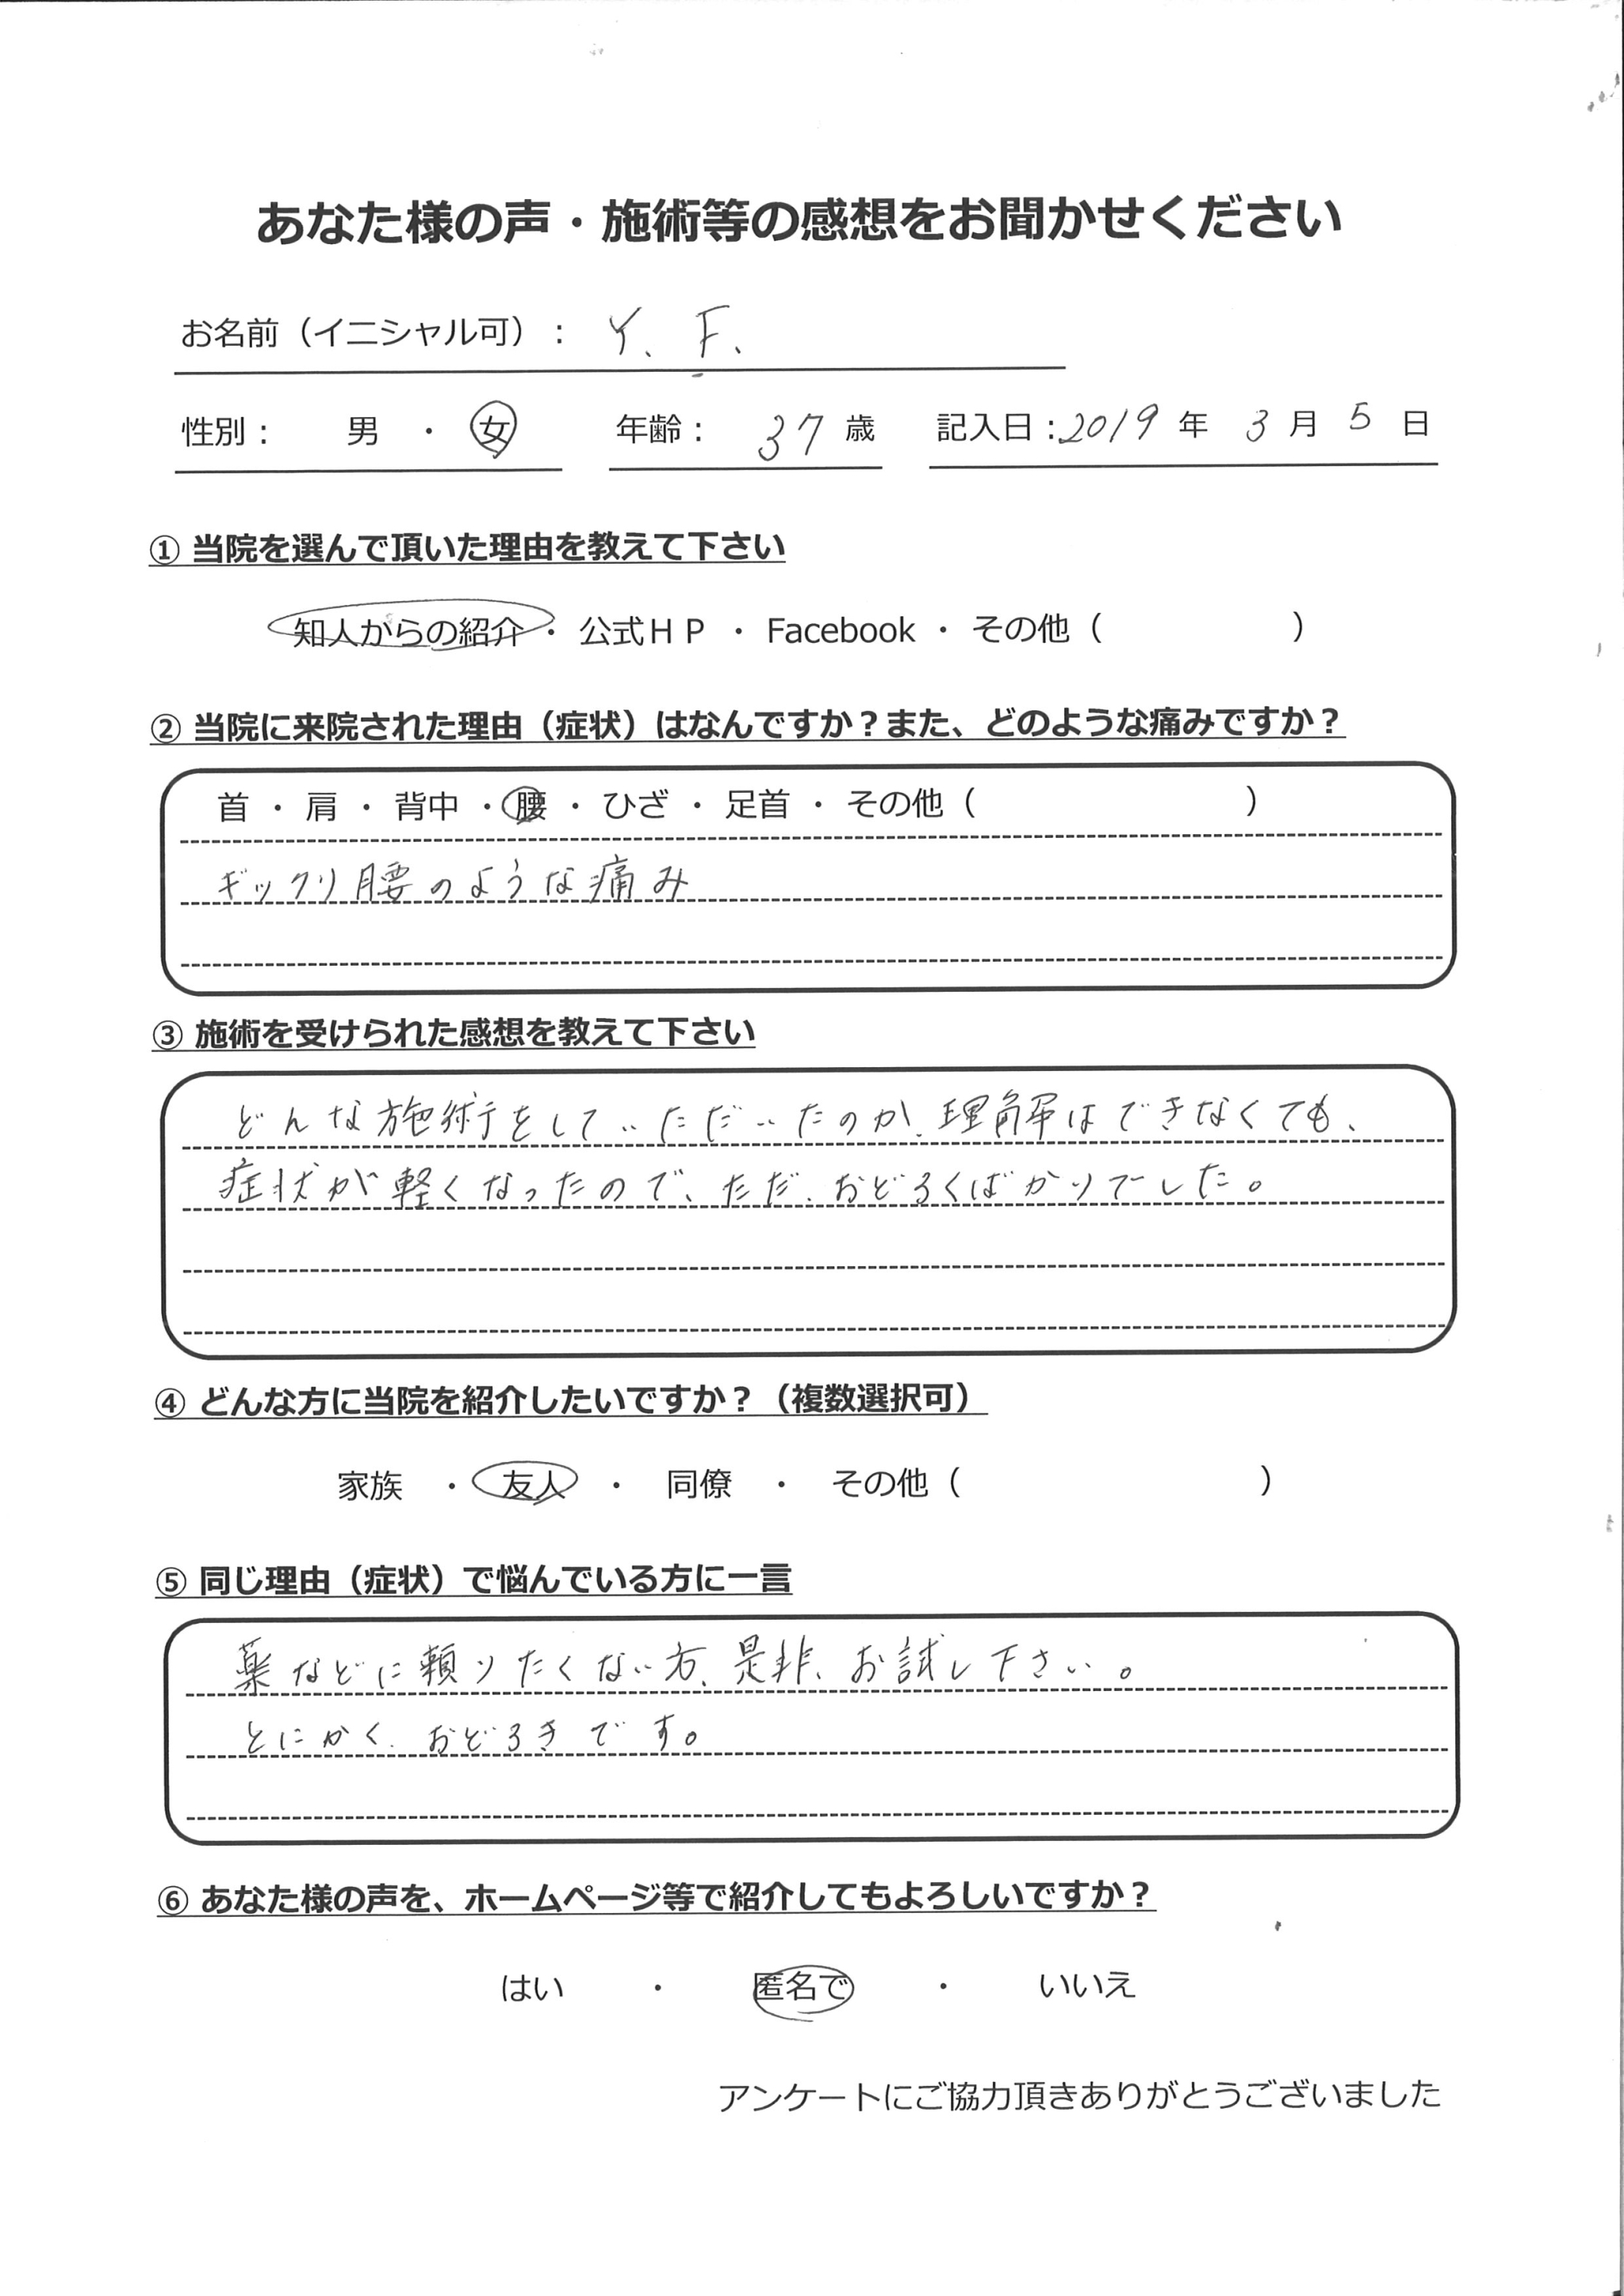 あなた様の声・施術等の感想をお聞かせください
お名前（イニシャル可）： Y. F.
性別： 男 ・ 女 年齢： 37 歳 記入日：2019 年 3 月 5 日
① 当院を選んで頂いた理由を教えて下さい
知人からの紹介 ・ 公式ＨＰ ・ Facebook ・ その他（ ）
② 当院に来院された理由（症状）はなんですか？また、どのような痛みですか？
首 ・ 肩 ・ 背中 ・ 腰 ・ ひざ ・ 足首 ・ その他（ ）
ギックリ腰のような痛み
③ 施術を受けられた感想を教えて下さい
どんな施術をしていただいたのか、理解はできなくても、
症状が軽くなったので、ただ、おどろくばかりでした。
④ どんな方に当院を紹介したいですか？（複数選択可）
家族 ・ 友人 ・ 同僚 ・ その他（ ）
⑤ 同じ理由（症状）で悩んでいる方に一言
薬などに頼りたくない方、是非、お試し下さい。
とにかく、おどろきです。
⑥ あなた様の声を、ホームページ等で紹介してもよろしいですか？
はい ・ 匿名で ・ いいえ
アンケートにご協力頂きありがとうございました